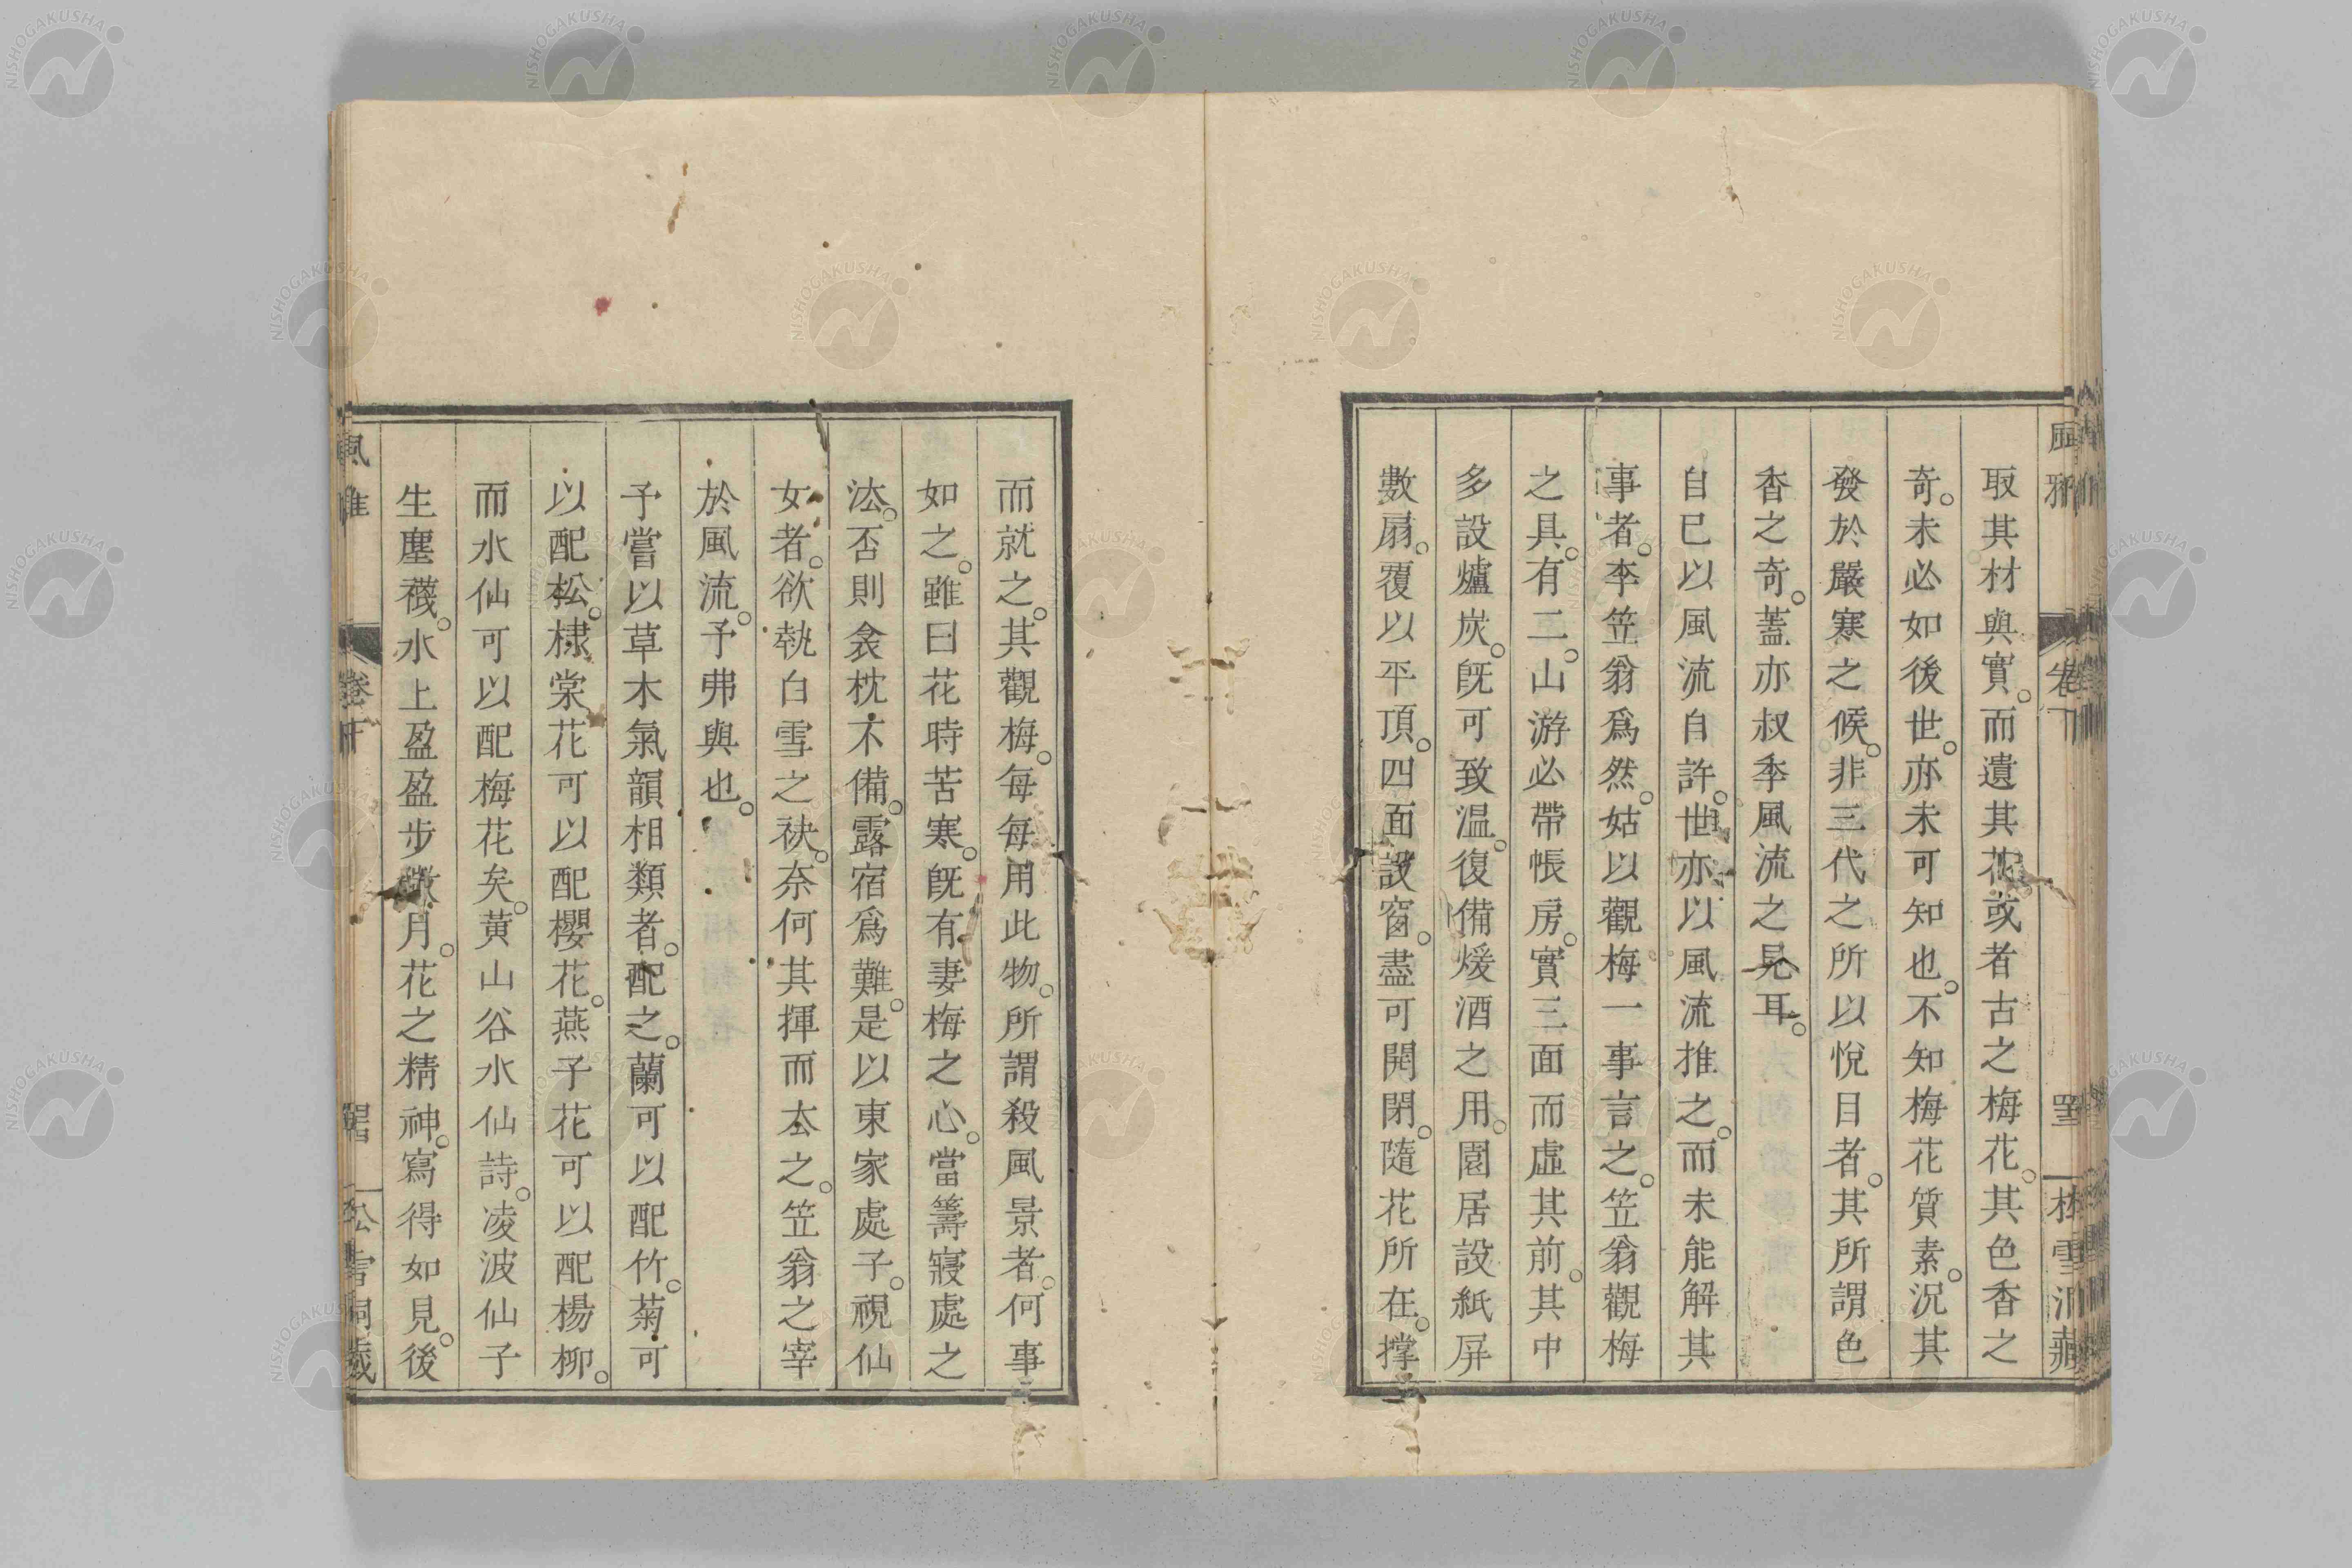 取其材與實。而遺其花。或者古之梅花。其色香之
奇。未必如後世。亦未可知也。不知梅花質素。況其
發於嚴寒之候。非三代之所以悅目者。其所謂色
香之奇。蓋亦叔季風流之見耳。
自已以風流自許。世亦以風流推之。而未能解其
事者。李笠翁爲然。姑以觀梅一事言之。笠翁觀梅
之具。有二。山游必帶帳房。實三面而虛其前。其中
多設爐炭。旣可致温。復備煖酒之用。園居設紙屏
數扇。覆以平頂。四面設窗。盡可開閉。隨花所在。撑
而就之。其觀梅。每每用此物。所謂殺風景者。何事
如之。雖曰花時苦寒。旣有妻梅之心。當籌寢處之
法。否則衾枕不備。露宿爲難。是以東家處子。視仙
女者。欲執白雪之袂。奈何其揮而去之。笠翁之宰
於風流。予弗與也。
予嘗以草木氣韻相類者。配之。蘭可以配竹。菊可
以配松。棣棠花可以配櫻花。燕子花可以配楊柳。
而水仙可以配梅花矣。黄山谷水仙詩。凌波仙子
生塵襪。水上盈盈步微月。花之精神。寫得如見。後
NISHOGAKUSHA